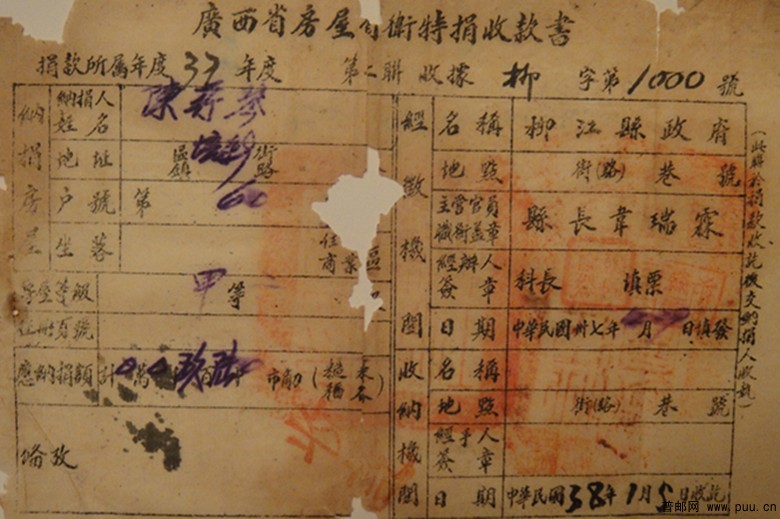 廣西省房屋自衛特捐收款書
捐款所屬年度37年度 第二聯 收據 柳 字第1000號
納捐房屋
納捐人姓名 陳
地址 區鎮 街路
戶號 第
坐落 住 商業區
房屋等級 甲等
註冊頁號
應納捐額 計 萬 玖百 市
備攷
經徵機關
名稱 柳江縣政府
地點 街(路) 巷 號
主管官員職銜蓋章 縣長韋瑞霖
經辦人簽章 科長 填票
日期 中華民國卅七年 月 日填發
收納機關
名稱
地點 街(路) 巷 號
經手人簽章
日期 中華民國38年1月5日收訖
(此聯於捐款收訖後交納捐人收執)
普邮网 www.puu.cn